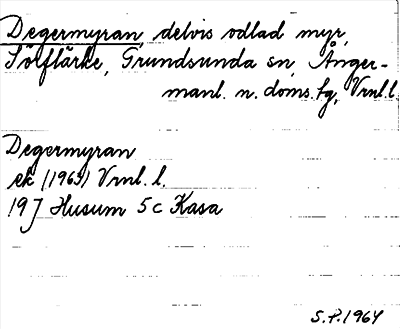 Degermyran, delvis odlad myr,
Sölflärke, Grundsunda sn, Ånger-
manl. n. doms.fg, Vrnl.l.
Degermyran
ek (1963) Vrnl. l.
19J Husum 5c Kasa
S.P.1964